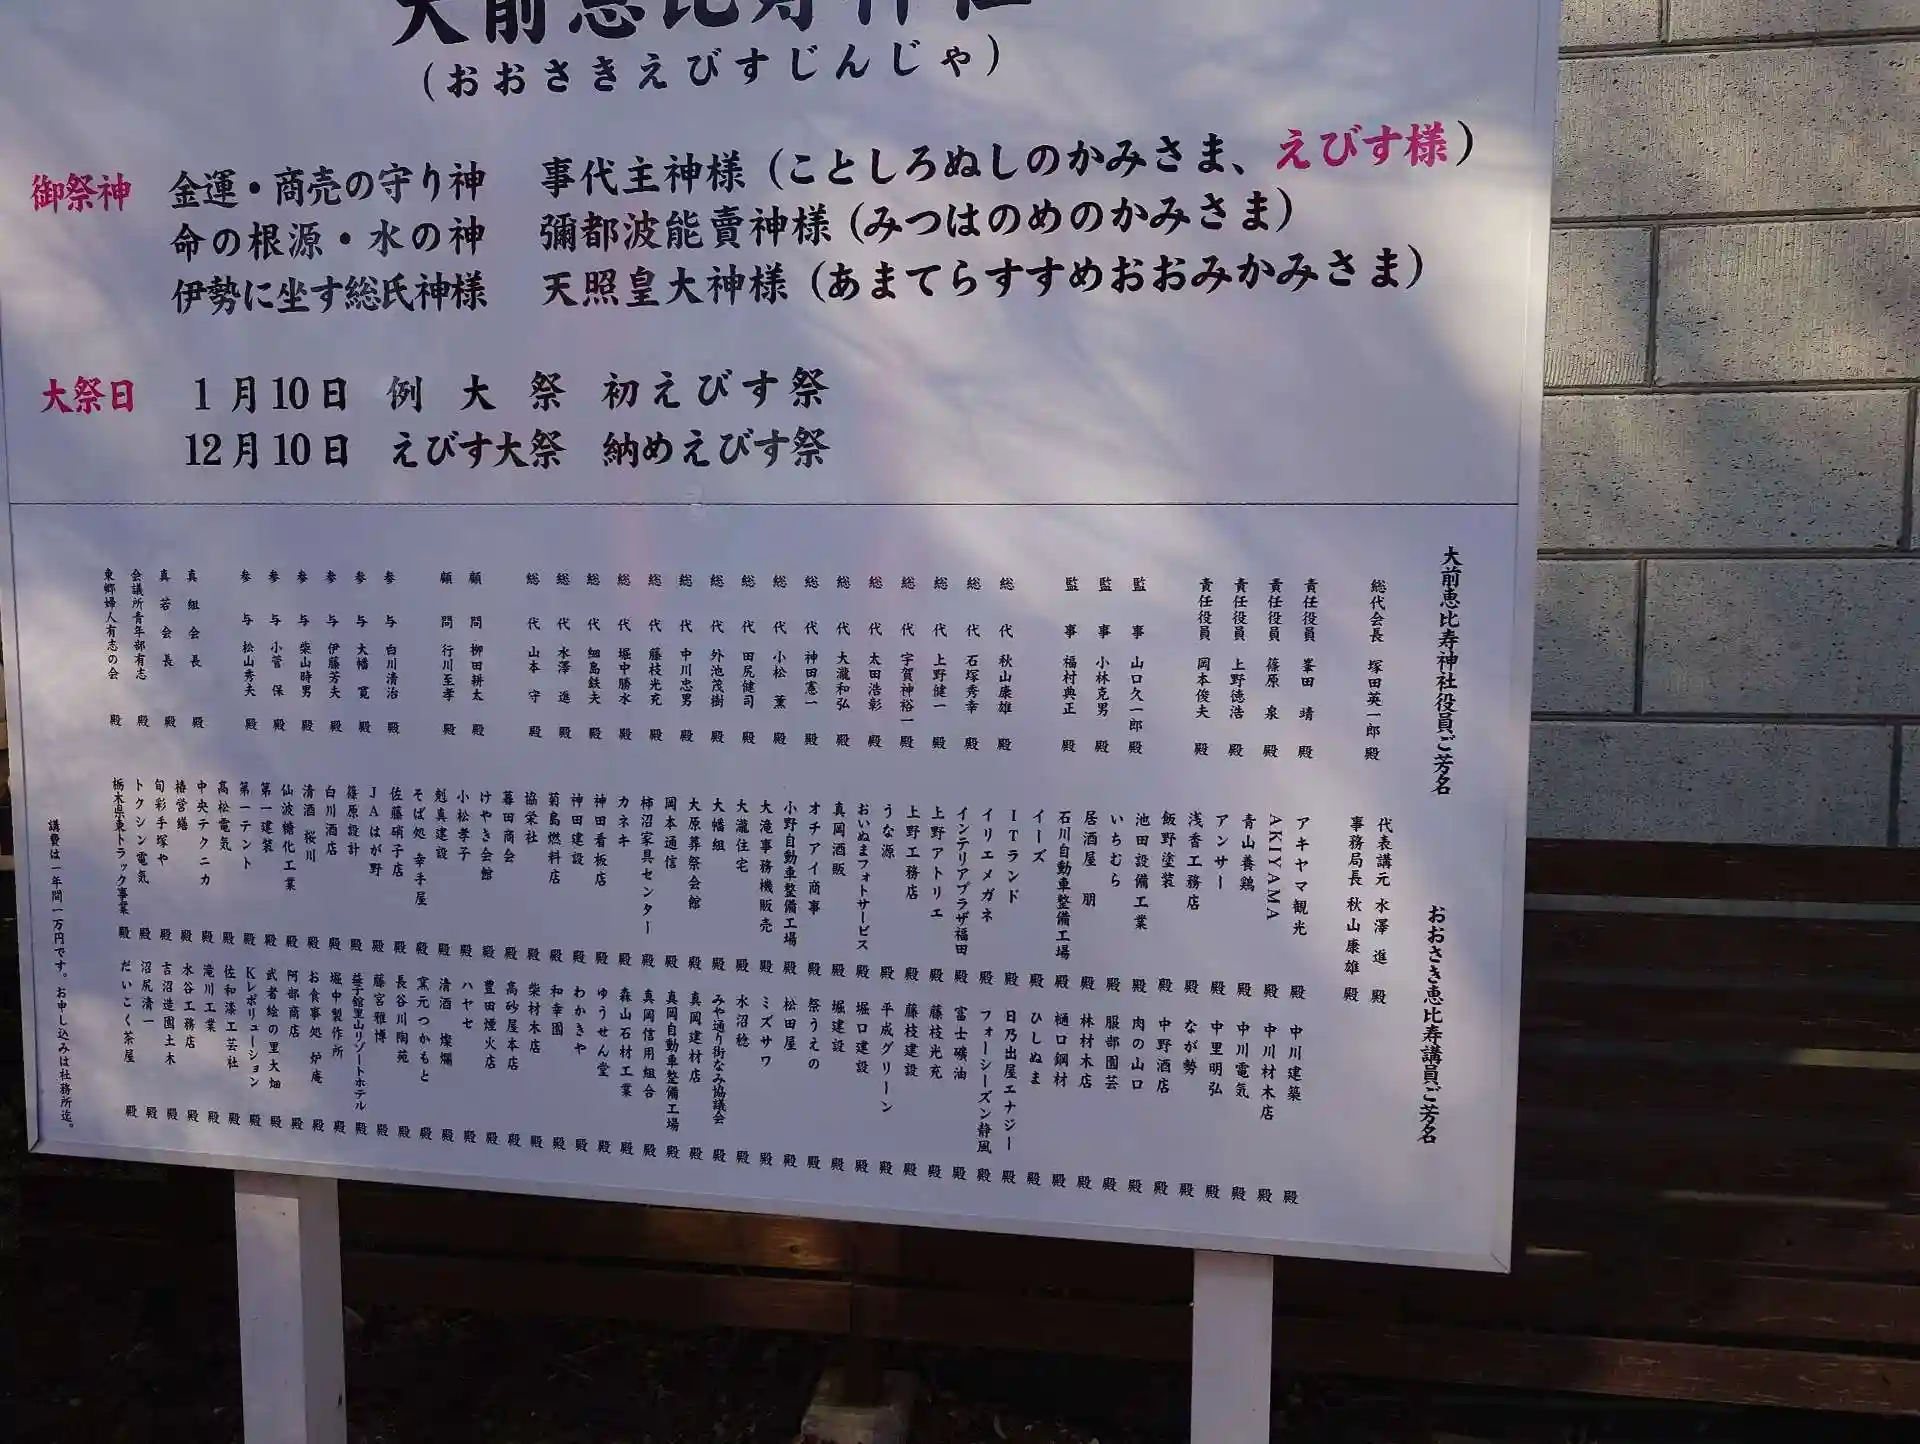 大前恵比寿神社
(おおさきえびすじんじゃ)
御祭神 金運・商売の守り神 事代主神様(ことしろぬしのかみさま、えびす様)
命の根源・水の神 彌都波能賣神様(みつはのめのかみさま)
伊勢に坐す総氏神様 天照皇大神様(あまてらすすめおおみかみさま)
大祭日 1月10日 例大祭 初えびす祭
12月10日 えびす大祭 納めえびす祭
大前恵比寿神社役員ご芳名
総代会長 塚田英一郎 殿
責任役員 峯田 靖 殿
責任役員 篠原 泉 殿
責任役員 上野徳浩 殿
責任役員 岡本俊夫 殿
監事 山口久一郎 殿
監事 小林克男 殿
監事 福村典正 殿
総代 秋山康雄 殿
総代 石塚秀幸 殿
総代 上野健一 殿
総代 宇賀神裕一 殿
総代 太田浩彰 殿
総代 大瀧和弘 殿
総代 神田憲一 殿
総代 小松 薫 殿
総代 田尻健司 殿
総代 外池茂樹 殿
総代 中川忠男 殿
総代 藤枝光充 殿
総代 堀中勝水 殿
総代 細島鉄夫 殿
総代 水澤 進 殿
総代 山本 守 殿
顧問 柳田耕太 殿
顧問 行川至孝 殿
参与 白川清治 殿
参与 大幡 寛 殿
参与 伊藤芳夫 殿
参与 柴山時男 殿
参与 小菅 保 殿
参与 松山秀夫 殿
真組会長 殿
真若会長 殿
会議所青年部有志 殿
東郷婦人有志の会 殿
おおさき恵比寿講員ご芳名
代表講元 水澤 進 殿
事務局長 秋山康雄 殿
アキヤマ観光 殿
AKIYAMA 殿
青山養鶏 殿
アンサー 殿
浅香工務店 殿
飯野塗装 殿
池田設備工業 殿
いちむら 殿
居酒屋 朋 殿
石川自動車整備工場 殿
イーズ 殿
ITランド 殿
イリエメガネ 殿
インテリアプラザ福田 殿
上野アトリエ 殿
上野工務店 殿
うな源 殿
おいぬまフォトサービス 殿
真岡酒販 殿
オチアイ商事 殿
小野自動車整備工場 殿
大滝事務機販売 殿
大瀧住宅 殿
大幡組 殿
大原葬祭会館 殿
岡本通信 殿
柿沼家具センター 殿
カネキ 殿
神田看板店 殿
神田建設 殿
菊島燃料店 殿
協栄社 殿
暮田商会 殿
けやき会館 殿
小松孝子 殿
剋真建設 殿
そば処 幸手屋 殿
佐藤硝子店 殿
JAはが野 殿
篠原設計 殿
白川酒店 殿
清酒 桜川 殿
仙波糖化工業 殿
第一建装 殿
第一テント 殿
高松電気 殿
中央テクニカ 殿
椿営繕 殿
旬彩手塚や 殿
トクシン電気 殿
栃木県東トラック事業 殿
中川建築 殿
中川材木店 殿
中川電気 殿
中里明弘 殿
なが勢 殿
中野酒店 殿
肉の山口 殿
服部園芸 殿
林材木店 殿
樋口鋼材 殿
ひしぬま 殿
日乃出屋エナジー 殿
フォーシーズン静風 殿
富士礦油 殿
藤枝光充 殿
藤枝建設 殿
平成グリーン 殿
堀口建設 殿
堀建設 殿
祭うえの 殿
松田屋 殿
ミズサワ 殿
水沼稔 殿
みや通り街なみ協議会 殿
真岡建材店 殿
真岡自動車整備工場 殿
真岡信用組合 殿
森山石材工業 殿
ゆうせん堂 殿
わかきや 殿
和幸園 殿
柴材木店 殿
高砂屋本店 殿
豊田煙火店 殿
ハヤセ 殿
清酒 燦爛 殿
窯元つかもと 殿
長谷川陶苑 殿
藤宮雅博 殿
益子舘里山リゾートホテル 殿
堀中製作所 殿
お食事処 炉庵 殿
阿部商店 殿
武者絵の里大畑 殿
Kレボリューション 殿
佐和漆工芸社 殿
滝川工業 殿
水谷工務店 殿
吉沼造園土木 殿
沼尻清一 殿
だいこく茶屋 殿
講費は一年間一万円です。お申し込みは社務所迄。